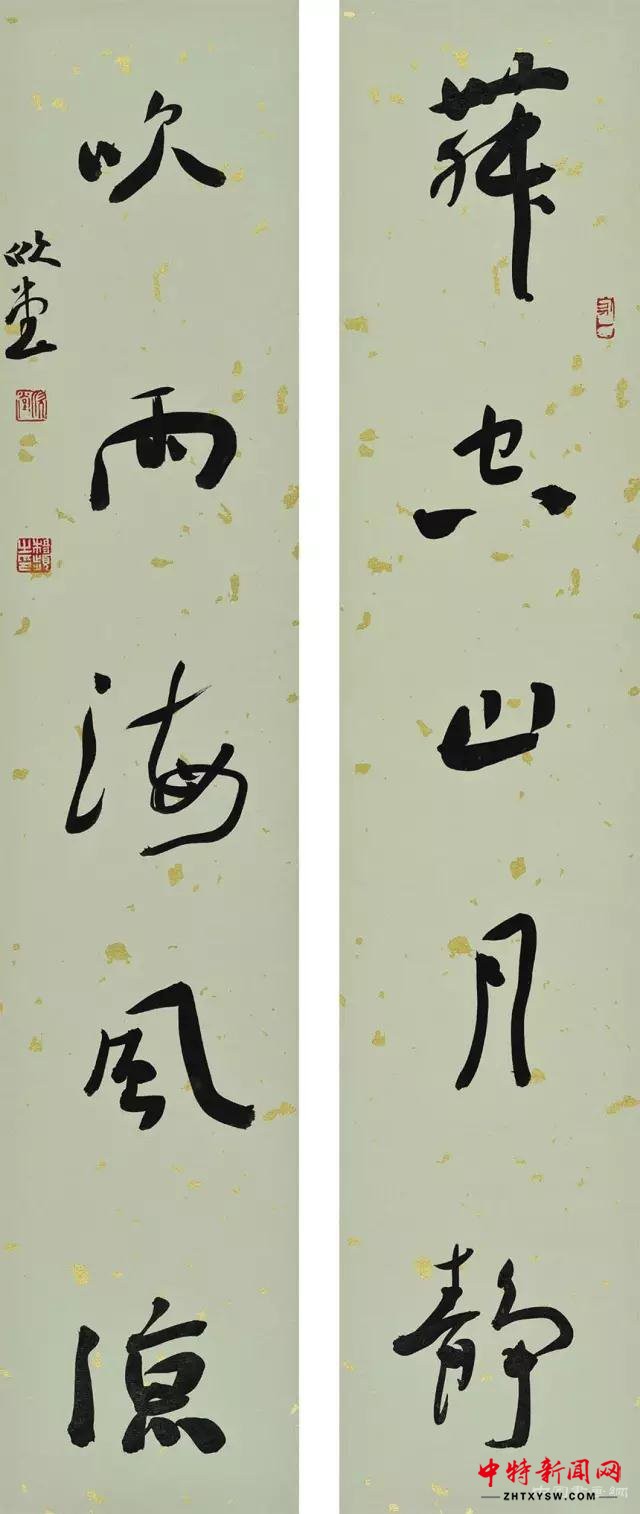 舞空山月静
吹雨海風涼
中特新闻网
ZHTXYSW.COM